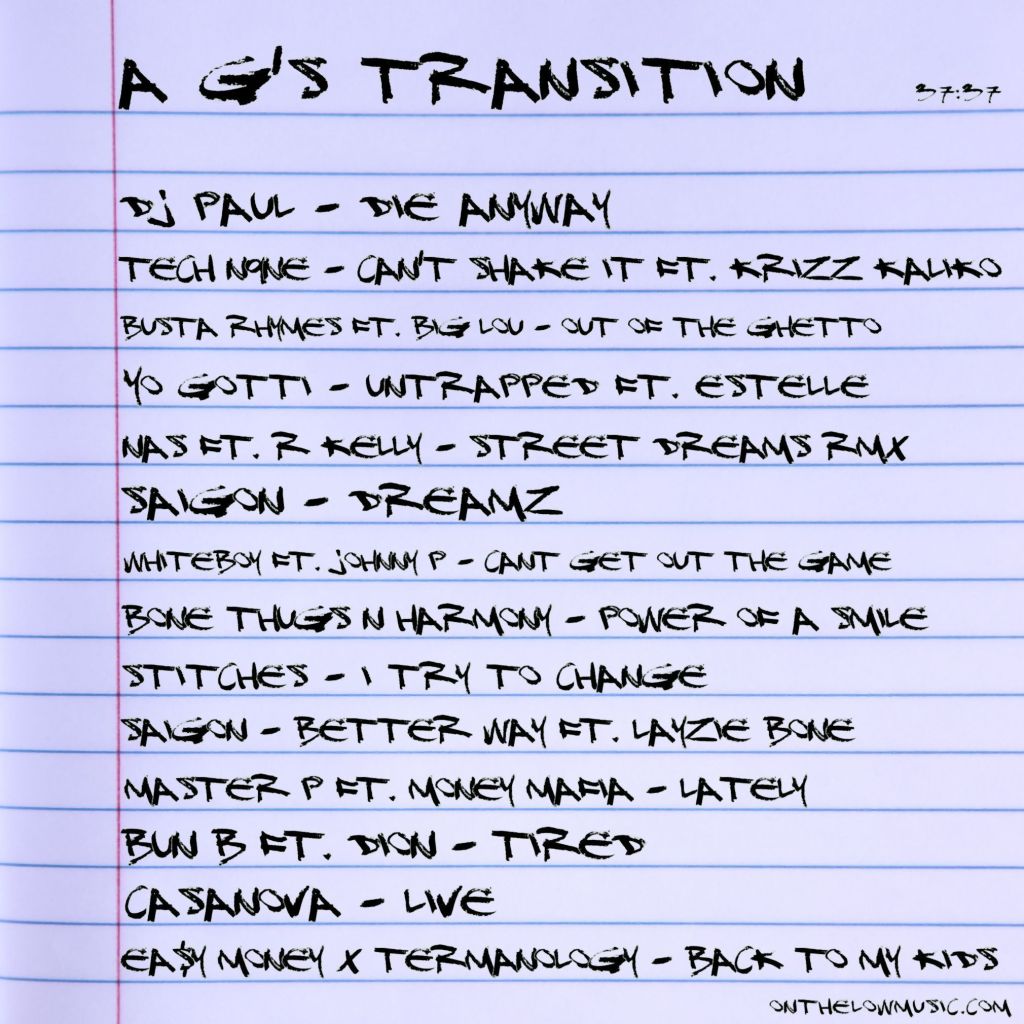 A G'S TRANSITION
37:37
DJ PAUL - DIE ANYWAY
TECH N9NE - CAN'T SHAKE IT FT. KRIZZ KALIKO
BUSTA RHYMES FT. BIG LOU - OUT OF THE GHETTO
YO GOTTI - UNTRAPPED FT. ESTELLE
NAS FT. R KELLY - STREET DREAMS RMX
SAIGON - DREAMZ
WHITEBOY FT. JOHNNY P - CANT GET OUT THE GAME
BONE THUGS N HARMONY - POWER OF A SMILE
STITCHES - I TRY TO CHANGE
SAIGON - BETTER WAY FT. LAYZIE BONE
MASTER P FT. MONEY MAFIA - LATELY
BUN B FT. DION - TIRED
CASANOVA - LIVE
EA$Y MONEY X TERMANOLOGY - BACK TO MY KIDS
ONTHELOWMUSIC.COM